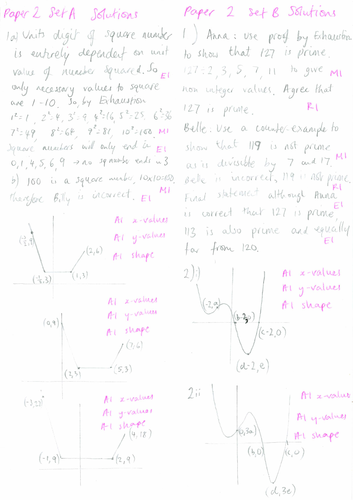 Paper 2 Set A Solutions
1a) Unit digit of square number
is entirely dependent on unit
value of number squared. So E1
only necessary values to square
are 1-10. So, by Exhaustion
1²=1, 2²=4, 3²=9, 4²=16, 5²=25, 6²=36
7²=49, 8²=64, 9²=81, 10²=100. M1
Square numbers will only end in
0,1,4,5,6,9 so no square ends =3 E1
b) 100 is a square number, 10x10=100,
therefore Billy is incorrect. E1
A1 x-values
A1 y-values
A1 shape
(2,6)
(1,3)
(0,9)
A1 x-values
A1 y-values
A1 shape
(7,6)
(3,3)
(5,3)
A1 x-values
A1 y-values
A1 shape
(4,18)
(-1,9)
(2,9)
Paper 2 Set B Solutions
1) Anna: use proof by Exhaustion
to show that 127 is prime.
127÷2, 3, 5, 7, 11 to give M1
non integer values. Agree that
127 is prime. R1
Belle: Use a counter-example to
show that 119 is not prime
as is divisible by 7 and 17. M1
Belle is incorrect, 119 is not prime R1
Final statement although Anna
is correct that 127 is prime, E1
113 is also prime and equally
far from 120. E1
2)i)
A1 x-values
A1 y-values
A1 shape
(-2,a)
(b-2,0)
(c-2,0)
(d-2,e)
2ii
A1 x-values
A1 y-values
A1 shape
(0,3a)
(b,0)
(c,0)
(d,3e)